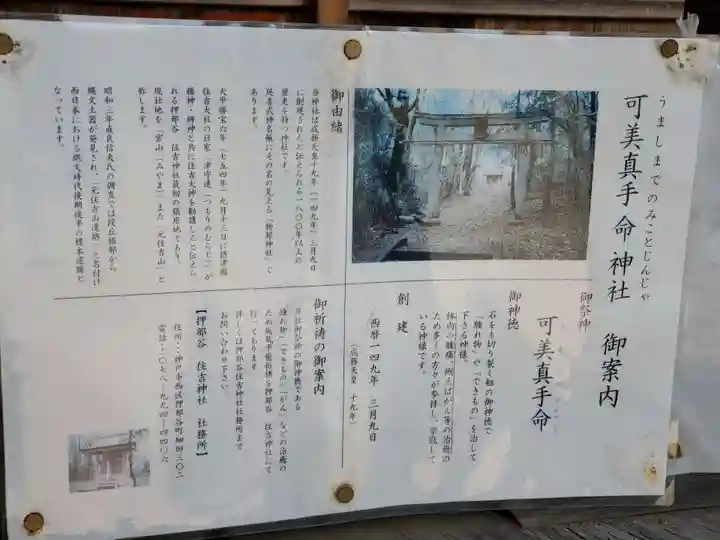 うましまでのみことじんじゃ
可美真手命神社 御案内
御祭神
可美真手命
御神徳
石をも切り裂く剣の御神徳で
「腫れ物」や「できもの」を治して
下さる神様。
体内の腫瘍、例えばがん等の治癒の
ため多くの方々が参拝し、崇敬して
いる神様です。
創建
西暦一四九年 三月九日
(成務天皇 十九年)
御由緒
当神社は成務天皇十九年(一四九年)三月九日
に創建されたと伝えられる一八〇〇年以上の
歴史を持つ神社です。
延喜式神名帳にその名の見える「物部神社」で
あります。
天平勝宝六年(七五四年)九月十三日に摂津國
住吉大社の社家 津守連(つもりのむらじ)が
櫛神・拝神と共に住吉大神を勧請したと伝えら
れる押部谷 住吉神社最初の鎮座地であり、
現社地を「宮山(みやま)」また「元住吉山」と
称します。
昭和三年直良信夫氏の調査では段丘極部から
縄文土器が発見され、「元住吉山遺跡」と名付け
西日本における縄文時代後期後半の標本遺蹟と
なっています。
御祈祷の御案内
当社御祭神の御神徳である
「腫れ物」「できもの」「がん」などの治癒の
ため病気平癒祈祷を押部谷 住吉神社にて
行っております
詳しくは押部谷住吉神社社務所まで
お問い合わせ下さい。
【押部谷 住吉神社 社務所】
住所…神戸市西区押部谷町細田三〇二
電話…〇七八―九九四―四四〇六